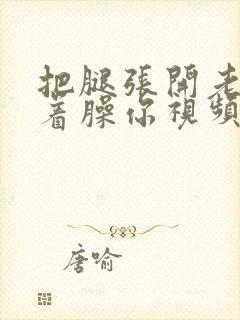 把腿張開老
着臊你視頻
唐喻